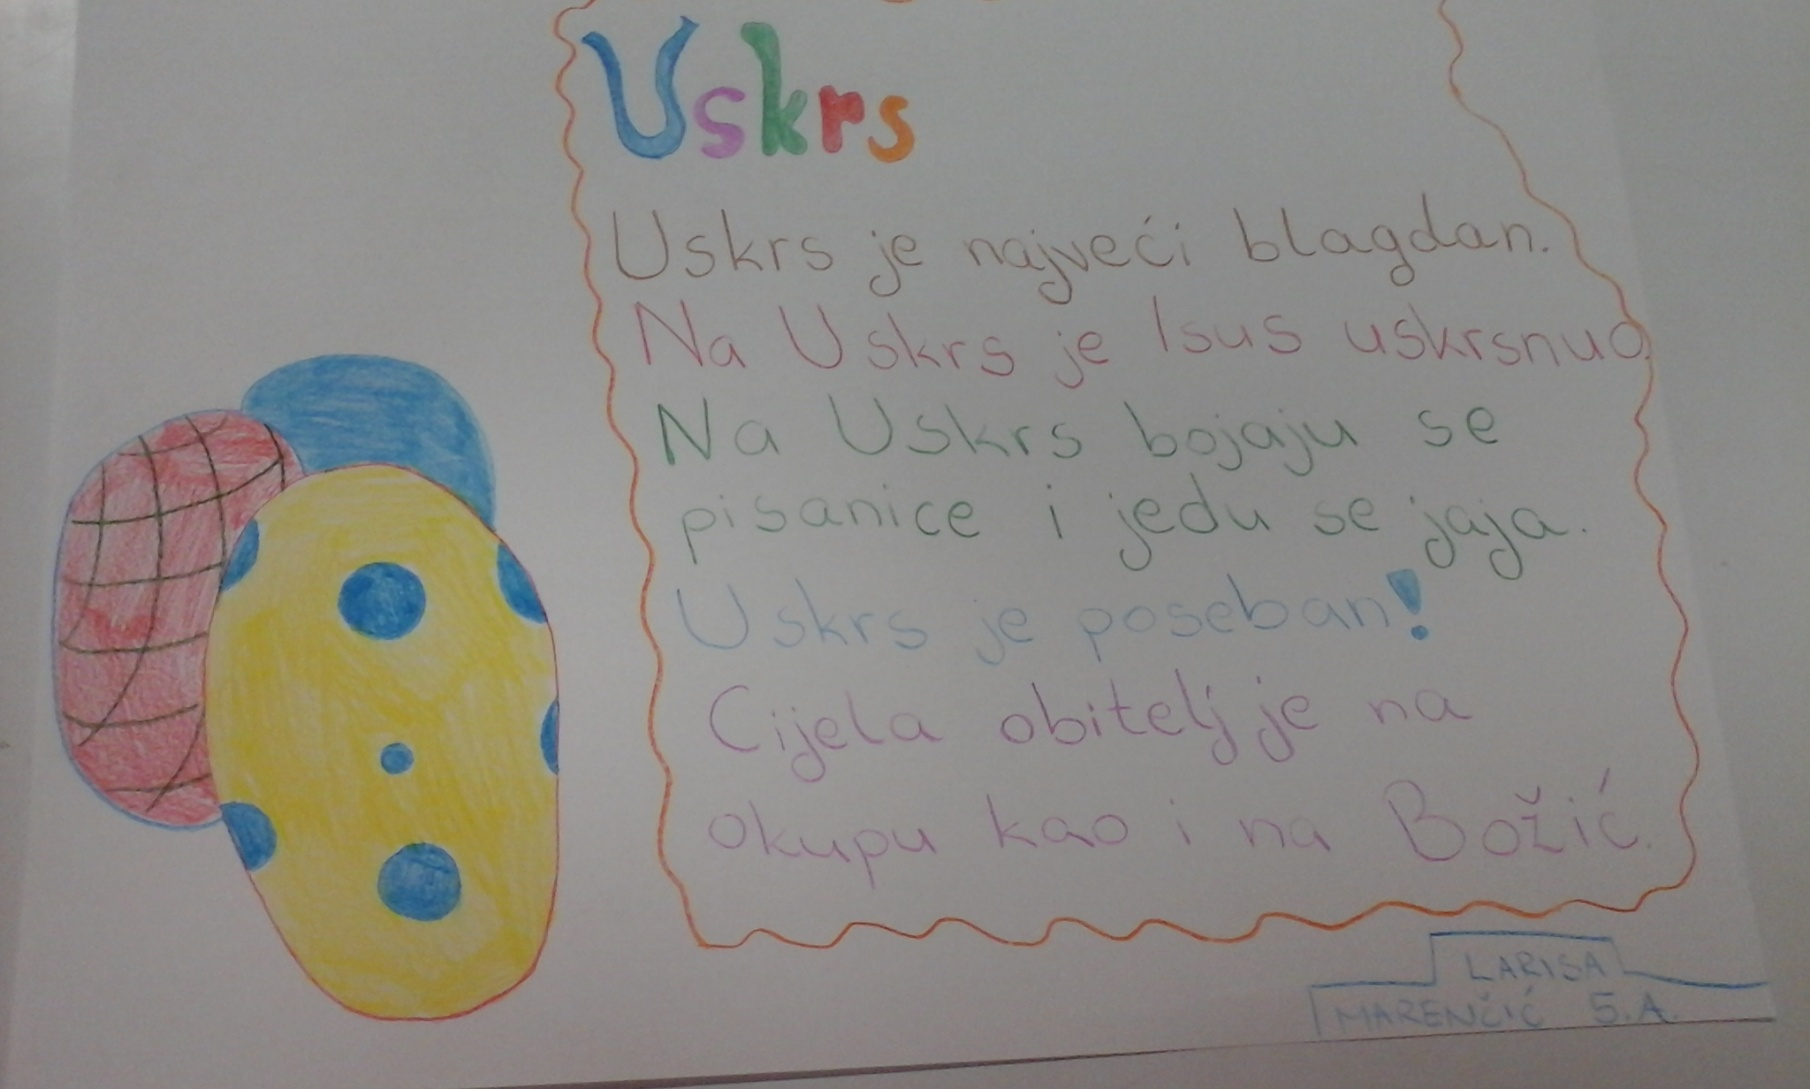 Uskrs
Uskrs je najveći blagdan.
Na Uskrs je Isus uskrsnuo.
Na Uskrs bojaju se
pisanice i jedu se jaja.
Uskrs je poseban!
Cijela obitelj je na
okupu kao i na Božić.
LARISA
MARENČIĆ 5.A